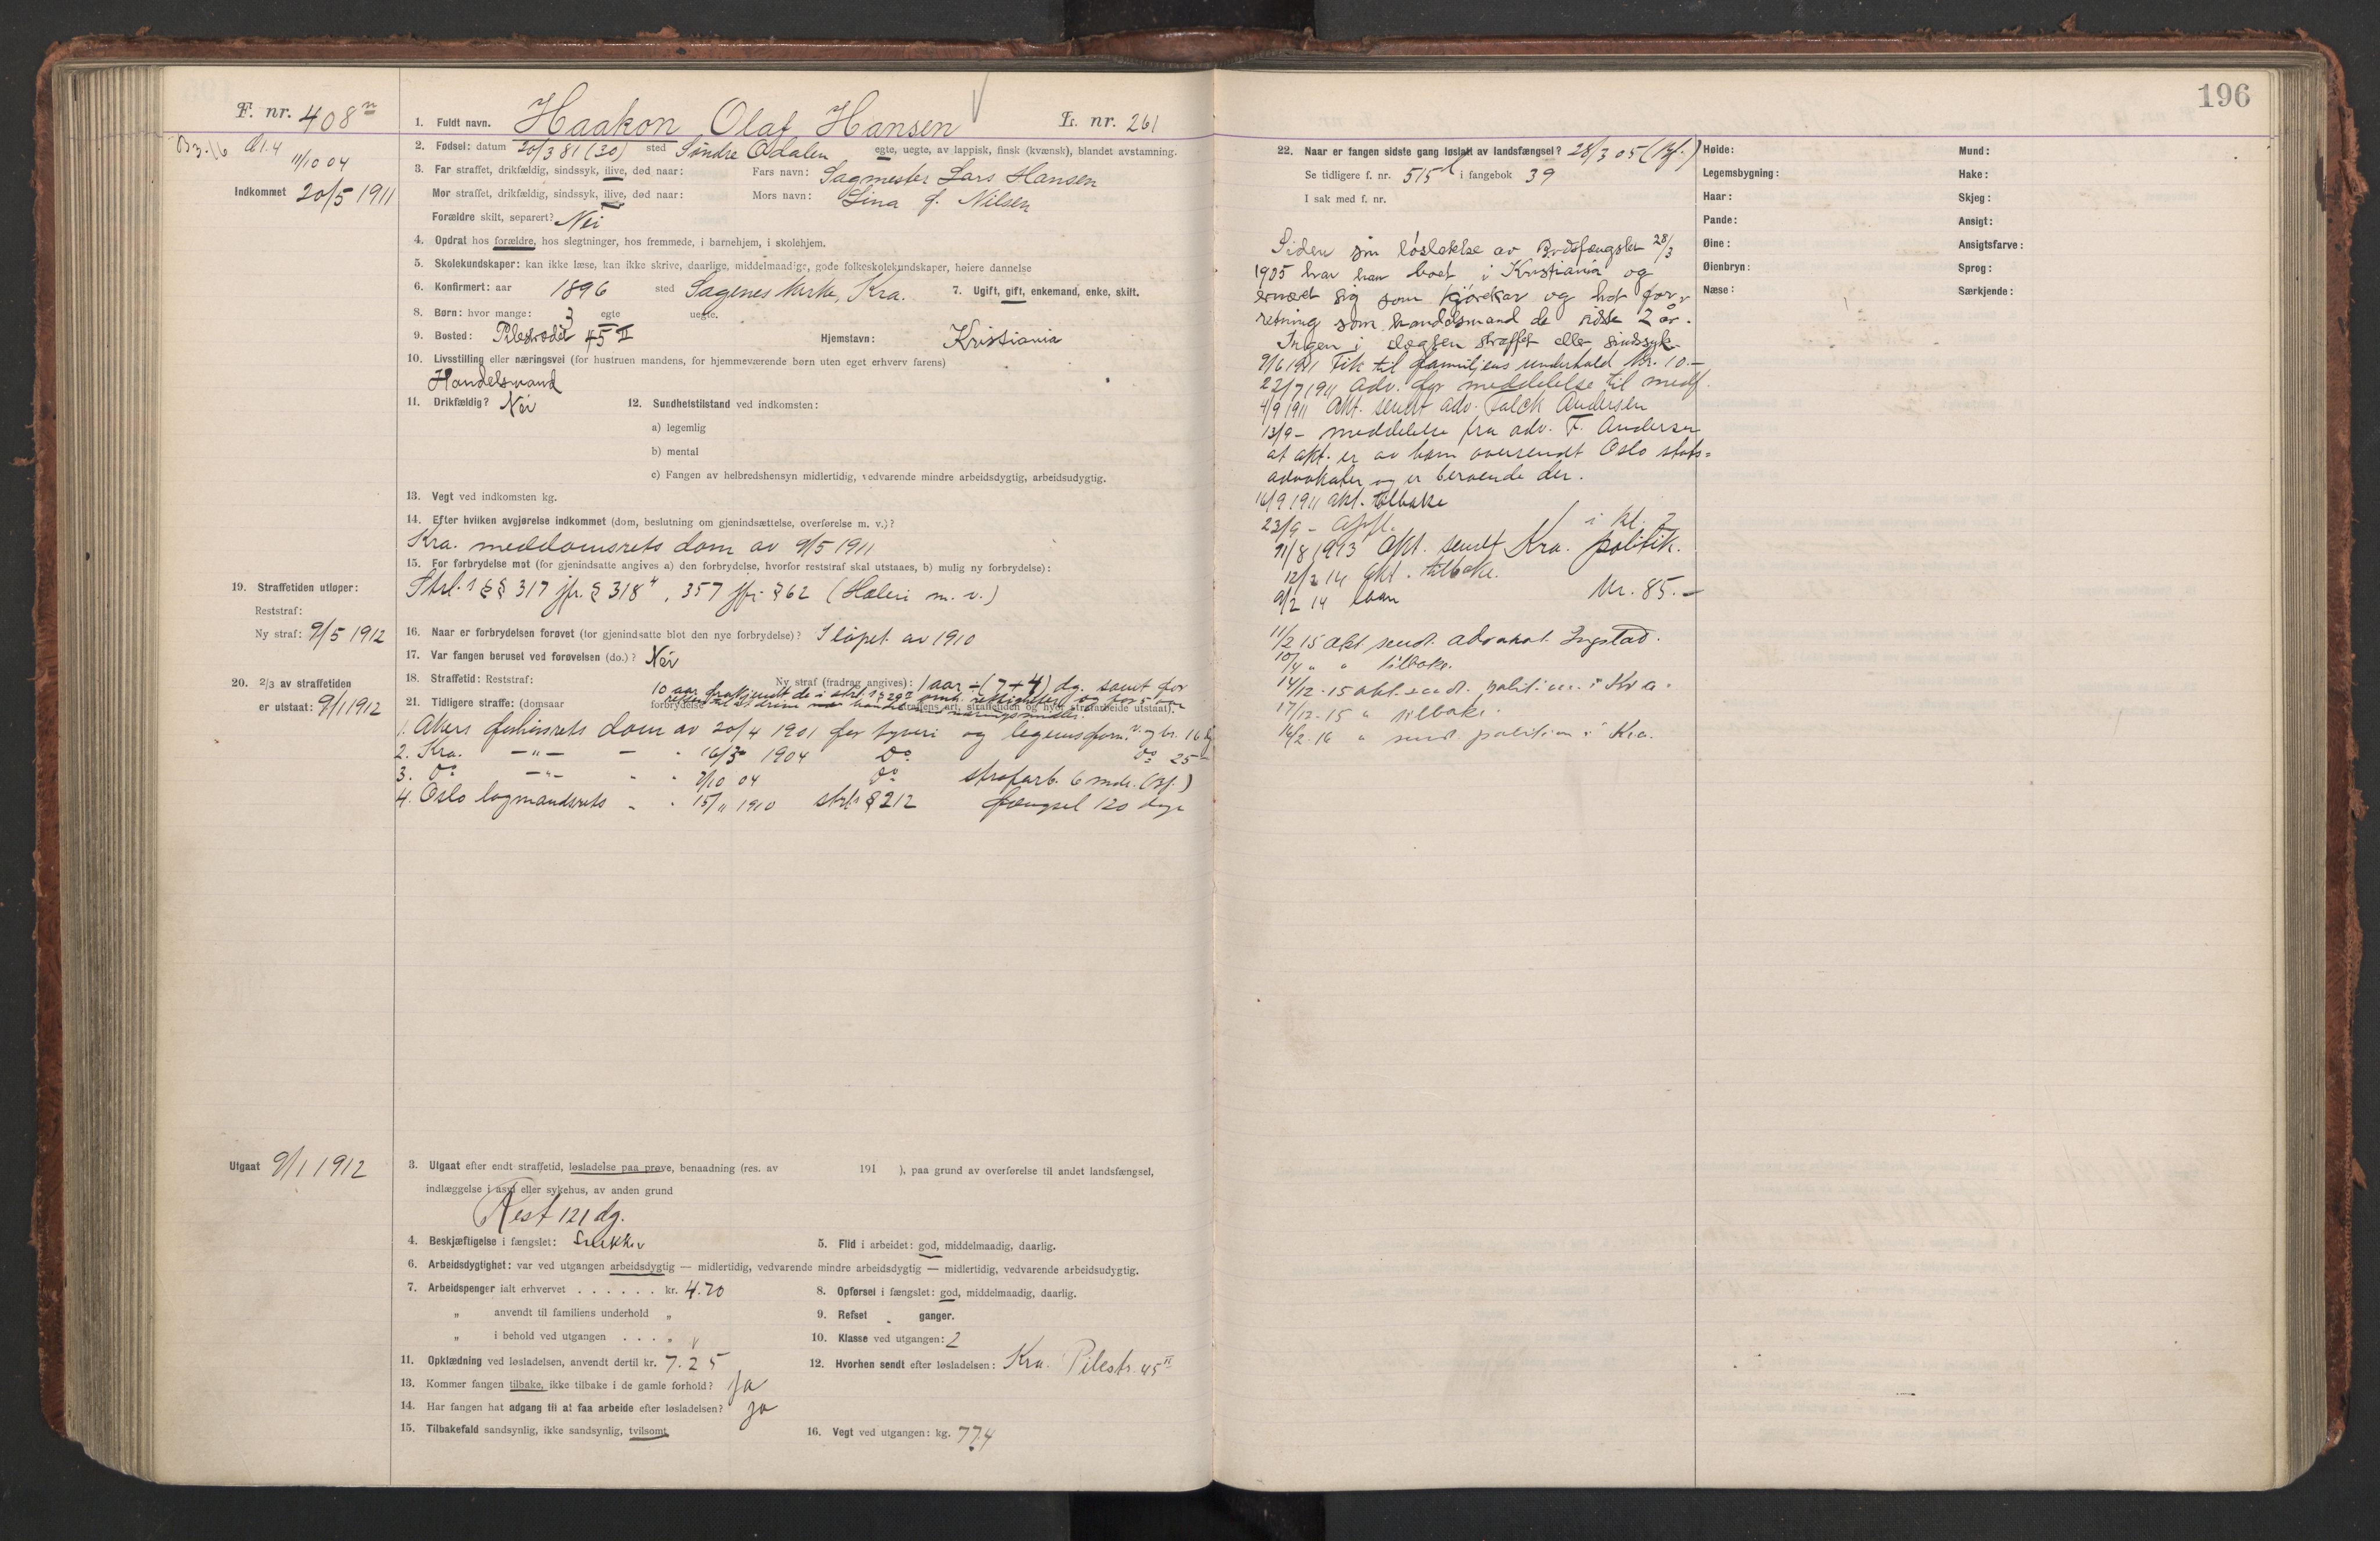 196
F. nr. 408
1. Fuldt navn. Haakon Olaf Hansen L. nr. 261
11/10 04
Indkommet 20/5 1911
2. Fødsel: datum 20/3 81 (30) sted Søndre Odalen egte, uegte, av lappisk, finsk (kvænsk), blandet avstamning.
3. Far straffet, drikfældig, sindssyk, ilive, død naar: Fars navn: Sagmester Lars Hansen
Mor straffet, drikfældig, sindssyk, ilive, død naar: Mors navn: Lina f. Nilsen
Forældre skilt, separert? Nei
4. Opdrat hos forældre, hos slegtninger, hos fremmede, i barnehjem, i skolehjem.
5. Skolekundskaper: kan ikke læse, kan ikke skrive, daarlige, middelmaadige, gode folkeskolekundskaper, høiere dannelse
6. Konfirmert: aar 1896 sted Sagenes kirke, Kra. 7. Ugift, gift, enkemand, enke, skilt.
8. Børn: hvor mange: 3 egte uegte.
9. Bosted: Pilestrædet 45 II Hjemstavn: Kristiania
10. Livsstilling eller næringsvei (for hustruen mandens, for hjemmeværende børn uten eget erhverv farens)
Handelsmand
11. Drikfældig? Nei 12. Sundhetstilstand ved indkomsten:
a) legemlig
b) mental
c) Fangen av helbredshensyn midlertidig, vedvarende mindre arbeidsdygtig, arbeidsudygtig.
13. Vegt ved indkomsten kg.
14. Efter hvilken avgjørelse indkommet (dom, beslutning om gjenindsættelse, overførelse m. v.)?
Kra. meddomsrets dom av 9/5 1911
15. For forbrydelse mot (for gjenindsatte angives a) den forbrydelse, hvorfor reststraf skal utstaaes, b) mulig ny forbrydelse):
Strl.s §§ 317 jfr. § 318 4, 357 jfr. § 62 (Hæleri m. v.)
19. Straffetiden utløper:
Reststraf:
Ny straf: 9/5 1912
16. Naar er forbrydelsen forøvet (for gjenindsatte blot den nye forbrydelse)? I løpet av 1910
17. Var fangen beruset ved forøvelsen (do.)? Nei
18. Straffetid: Reststraf: Ny straf (fradrag angives): 1 aar ÷ (7 + 4) dg. samt for
10 aar frakjendt de i strl.s § 29 2 omh. rettigheter og for 5 aar
20. 2/3 av straffetiden
er utstaat: 9/1 1912
21. Tidligere straffe: (domsaar forbrydelse straffens art, straffetiden og hvor strafarbeide utstaat).
1. Akers forhørsrets dom av 20/4 1901 for tyveri og legemsforn. v. og br. 16 dg
2. Kra. —"— — " 16/3 1904 Do Do 25 "
3. Do —"— " " 7/10 04 Do strafarb. 6 mdr. (Bf.)
4. Oslo lagmandsrets " " 15/11 1910 strl.s § 212 fængsel 120 dage
Utgaat 9/1 1912
3. Utgaat efter endt straffetid, løsladelse paa prøve, benaadning (res. av 191 ), paa grund av overførelse til andet landsfængsel,
indlæggelse i asyl eller sykehus, av anden grund
Rest 121 dg.
4. Beskjæftigelse i fængslet: Snekker 5. Flid i arbeidet: god, middelmaadig, daarlig.
6. Arbeidsdygtighet: var ved utgangen arbeidsdygtig — midlertidig, vedvarende mindre arbeidsdygtig — midlertidig, vedvarende arbeidsudygtig.
7. Arbeidspenger ialt erhvervet . . . . . . kr. 4.70 8. Opførsel i fængslet: god, middelmaadig, daarlig.
" anvendt til familiens underhold " 9. Refset " ganger.
" i behold ved utgangen . . . " 10. Klasse ved utgangen: 2
11. Opklædning ved løsladelsen, anvendt dertil kr. 7.25 12. Hvorhen sendt efter løsladelsen: Kra. Pilestr. 45 II
13. Kommer fangen tilbake, ikke tilbake i de gamle forhold? Ja
14. Har fangen hat adgang til at faa arbeide efter løsladelsen? Ja
15. Tilbakefald sandsynlig, ikke sandsynlig, tvilsomt 16. Vegt ved utgangen: kg. 77.4
22. Naar er fangen sidste gang løslatt av landsfængsel? 28/3 05 (Bf.)
Se tidligere f. nr. 515 i fangebok 39
I sak med f. nr.
Siden sin løslatelse av Bodsfængslet 28/3
1905 har han boet i Kristiania og
ernæret sig som kjørekar og hat for-
retning som handelsmand de sidste 2 år.
Ingen i slegten straffet eller sindssyk
9/6 1911 Fik til familjens underhold kr. 10.—
22/7 1911 Adv. for meddelelse til medf.
4/9 1911 Akt. sendt adv. Falck Andersen
13/9 — meddelelse fra adv. F. Andersen
at akt. er av ham oversendt Oslo stats=
advokater og er beroende der.
16/9 1911 akt. tilbake
23/9 — Opfl. i kl. 2
11/8 1913 Akt. sendt Kra. politik.
12/2 14 Akt. tilbake.
9/2 14 laan kr. 85.—
11/2 15 akt sendt advokat Ingstad.
10/4 " " tilbake.
14/12-15 akt. sendt politim. i Kra.
17/12-15 " tilbake.
16/2-16 " sendt politim i Kra.
Høide:
Legemsbygning:
Haar:
Pande:
Øine:
Øienbryn:
Næse:
Mund:
Hake:
Skjeg:
Ansigt:
Ansigtsfarve:
Sprog:
Særkjende: